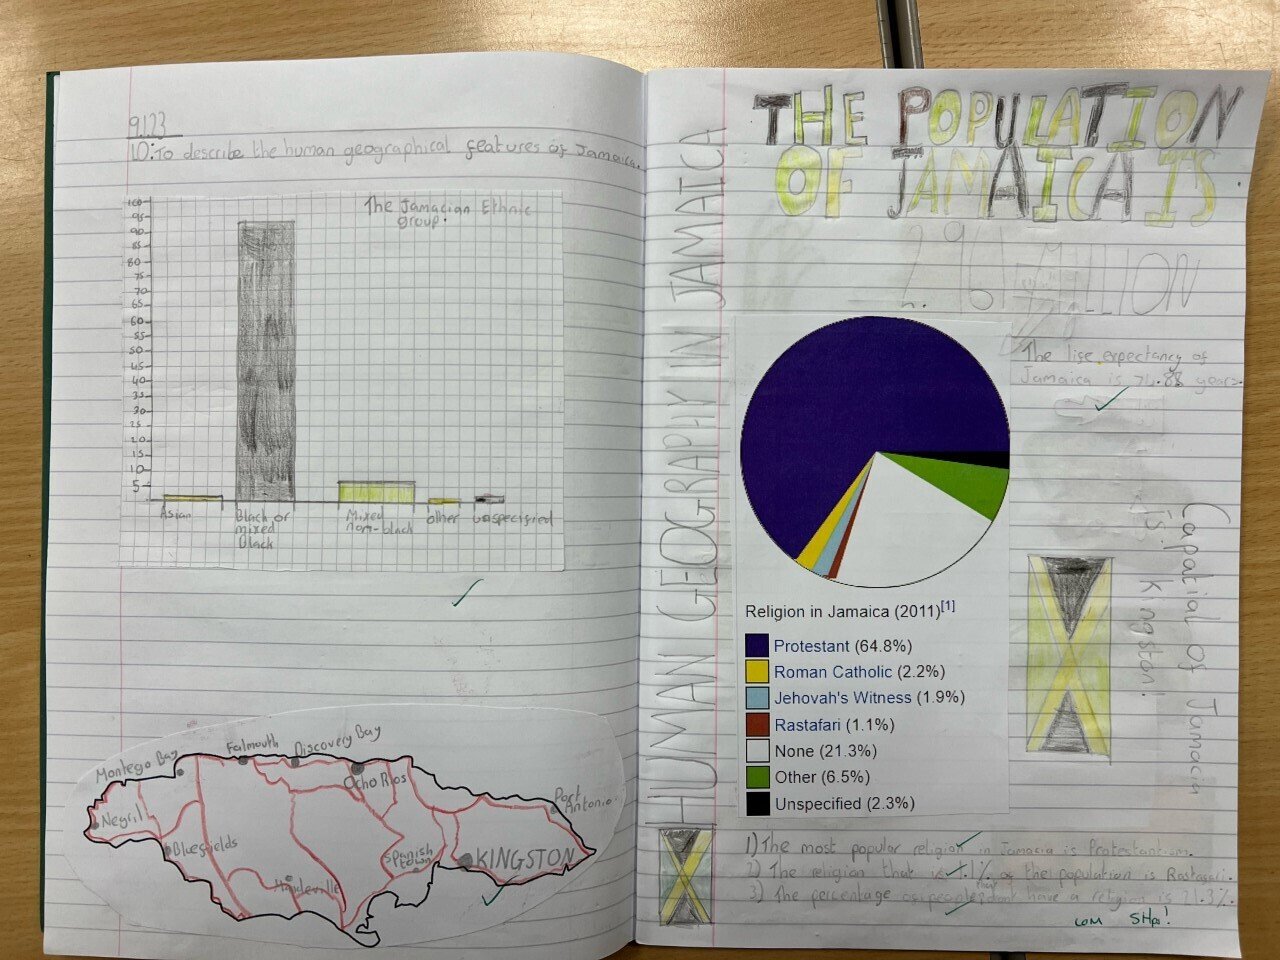 9.1.23
LO: To describe the human geographical features of Jamaica.
The Jamacian Ethnic
group.
100
95
90
85
80
75
70
65
60
55
50
45
40
35
30
25
20
15
10
5
Asian
Black or
mixed
black
Mixed
non-black
other
unspecified
Montego Bay
Falmouth
Discovery Bay
Ocho Rios
Port
Antonio
Negril
Bluefields
Spanish
town
KINGSTON
HUMAN GEOGRAPHY IN JAMAICA
THE POPULATION
OF JAMAICA IS
2.961 MILLION
The life expectancy of
Jamaica is 74.88 years.
Capatial Of Jamacia
is Kingston!
Religion in Jamaica (2011)[1]
Protestant (64.8%)
Roman Catholic (2.2%)
Jehovah's Witness (1.9%)
Rastafari (1.1%)
None (21.3%)
Other (6.5%)
Unspecified (2.3%)
1) The most popular religion in Jamacia is Protestantism.
2) The religion that is 1.1% of the population is Rastafari.
3) The percentage of people that dont have a religion is 21.3%.